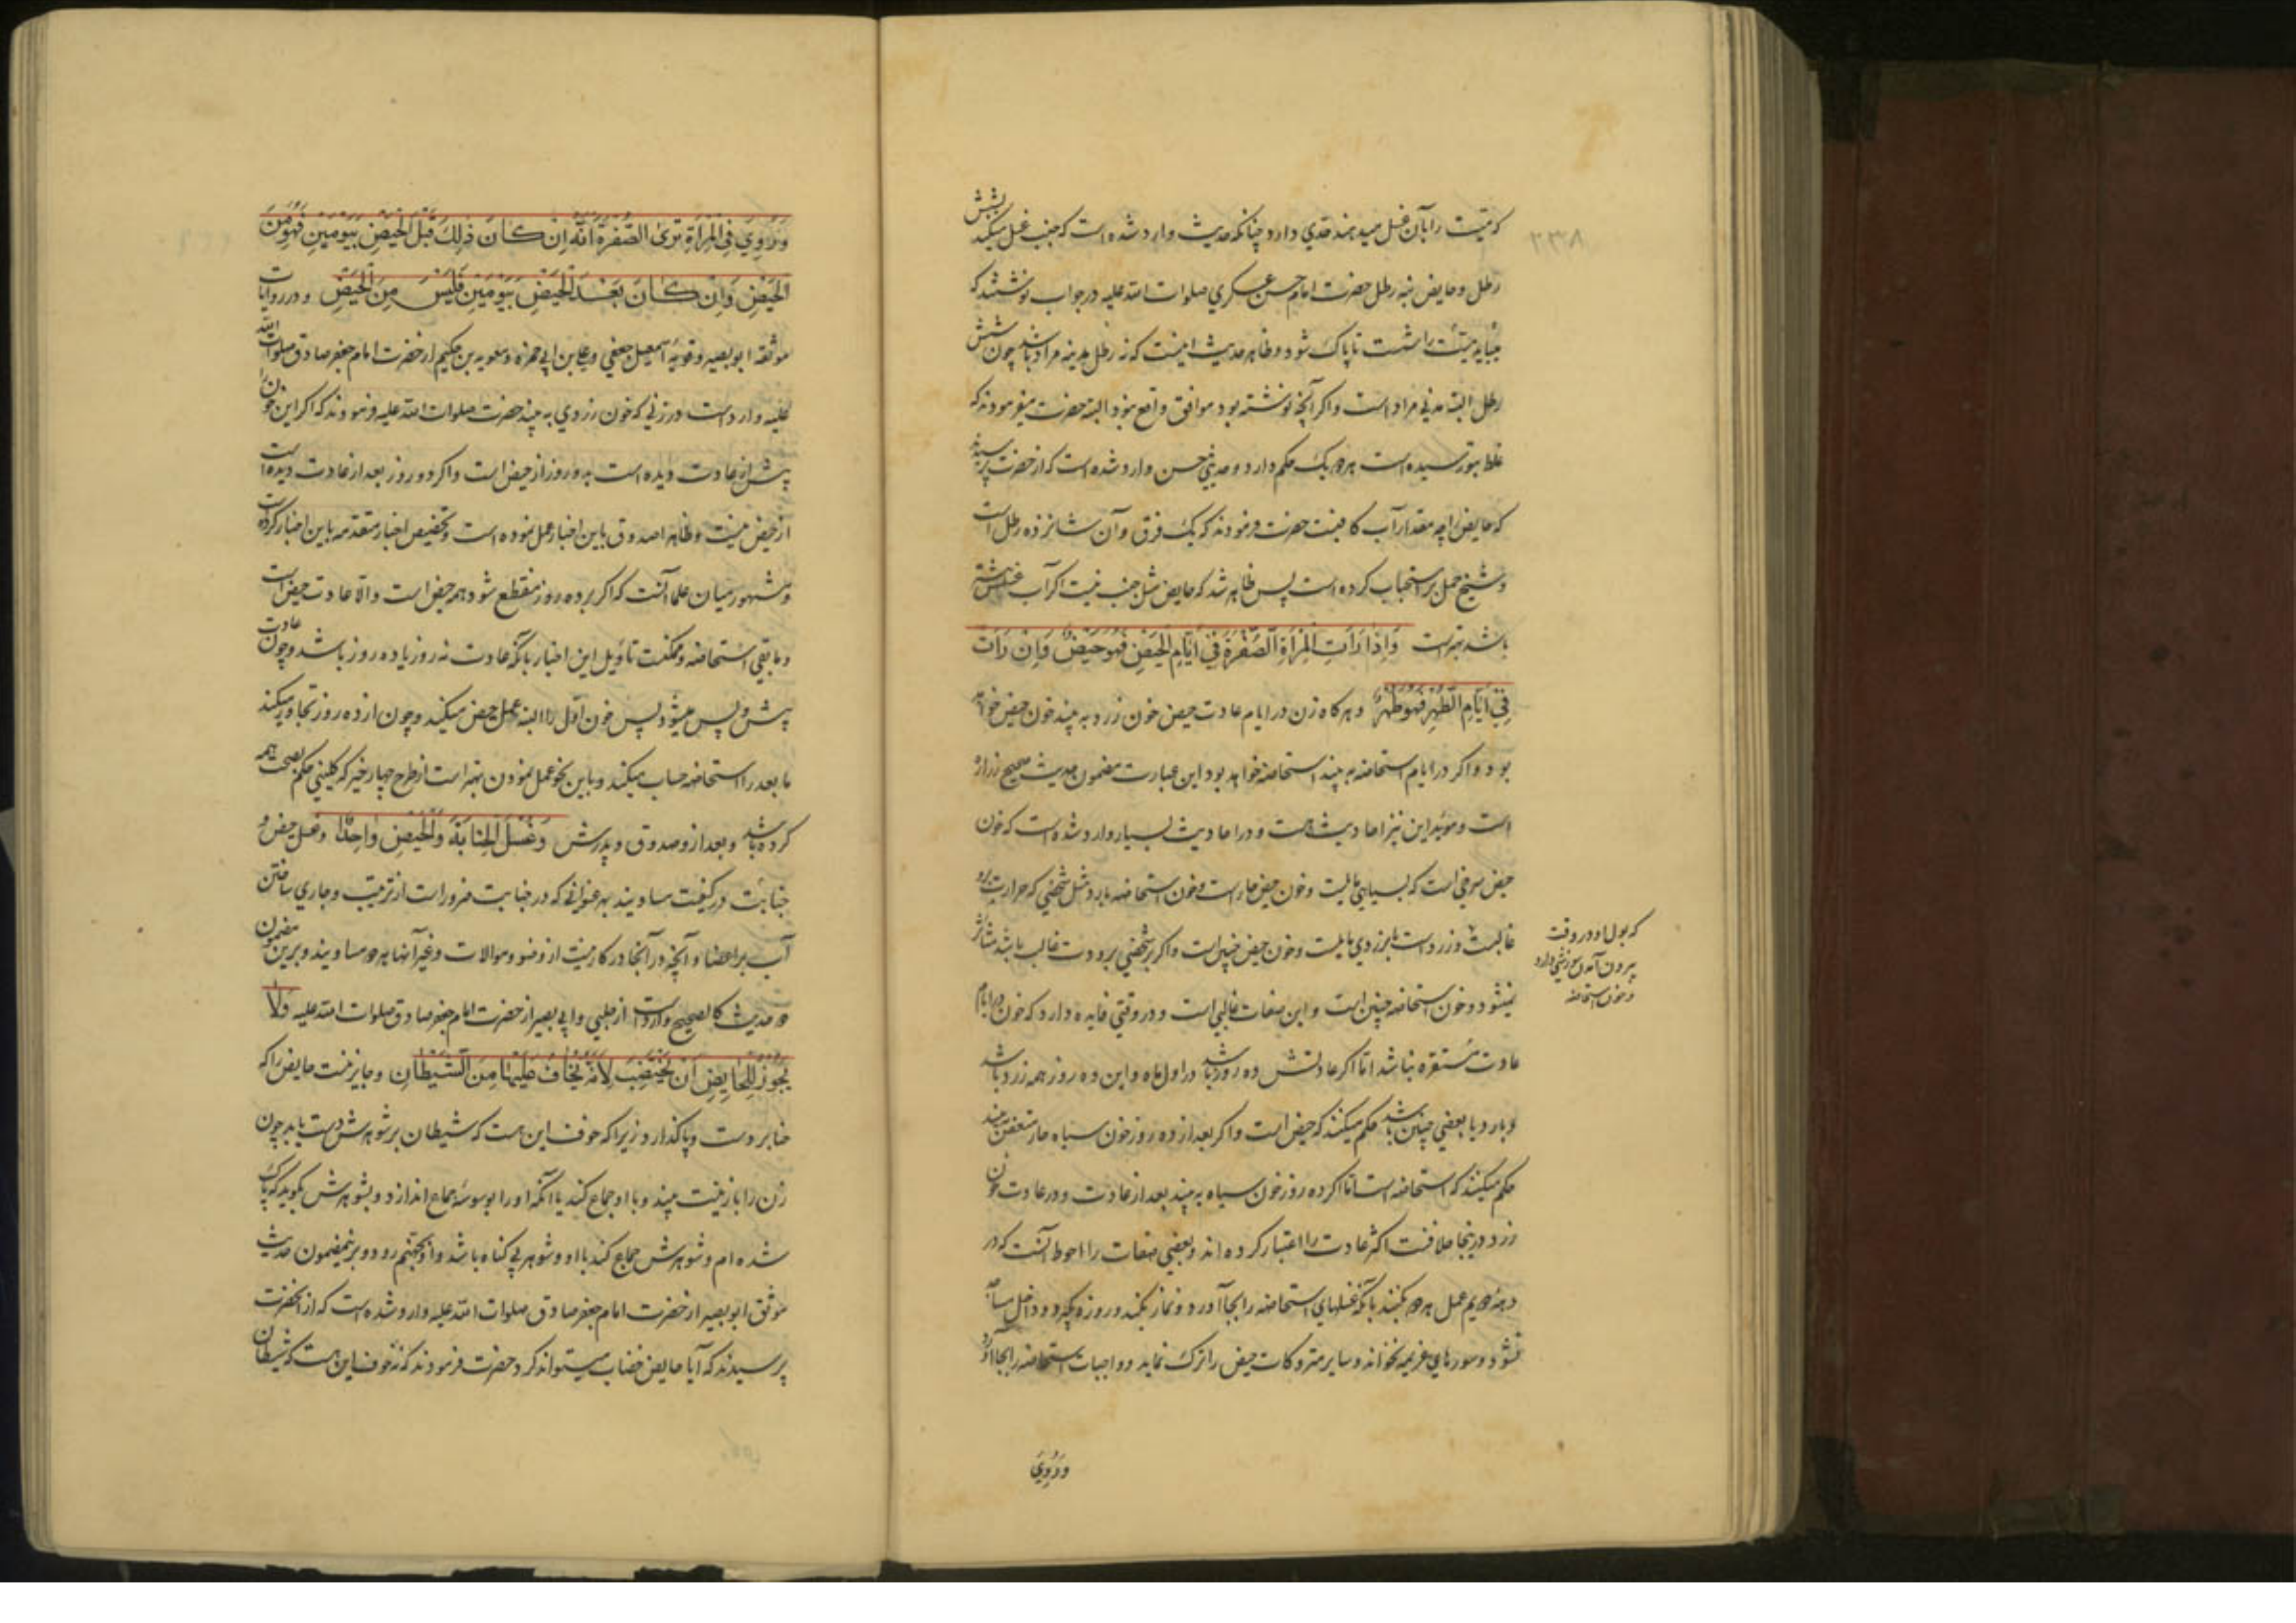 ۲۳۸
که میّت را بآن غسل میدهند قدری دارد چنانکه حدیث وارد شده است که جنب غسل میکند بشش
رطل و حایض بنه رطل حضرت امام حسن عسکری صلوات الله علیه در جواب نوشتند که
میباید میّت را شست تا پاک شود و ظاهر حدیث اینست که نه رطل مدینه مراد باشد چون شش
رطل البته مدنی مراد است و اگر آنچه نوشته بود موافق واقع نبود البته حضرت میفرمودند که
غلط بتو رسیده است هر دو یک حکم دارد و حدیثی حسن وارد شده است که از حضرت پرسیدند
که حایض را چه مقدار آب کافیست حضرت فرمودند که یک فرق و آن شانزده رطل است
و شیخ حمل بر استحباب کرده است پس ظاهر شد که حایض مثل جنب نیست اگر آب غسلش بیشتر
باشد بهتر است وَاِذا رَاَتِ المَرْاَةُ الصُّفْرَةَ فِی اَیّامِ الحَیْضِ فَهُوَ حَیْضٌ وَاِن رَاَتْ
فِی اَیّامِ الطُّهْرِ فَهُوَ طُهْرٌ و هر گاه زن در ایام عادت حیض خون زرد به بیند خون حیض خواهد
بود و اگر در ایام استحاضه به بیند استحاضه خواهد بود این عبارت مضمون حدیث صحیح زراره
است و مؤید این نیز احادیث هست و در احادیث بسیار وارد شده است که خون
حیض سرخی است که بسیاهی مایلست و خون حیض حار است و خون استحاضه بارد مثل شخصی که حرارت برو
غالبست و زرد است یا بزردی مایلست و خون حیض چنین است و اگر بر شخصی برودت غالب باشد متأثر
که بول او در وقت
بیرون آمدن سوزشی دارد
و خون استحاضه
نمیشود و خون استحاضه چنین است و این صفات غالبی است و در وقتی فایده دارد که خون در ایام
عادت مستقره نباشد امّا اگر عادتش ده روز باشد در اول ماه و این ده روز همه زرد باشد
و بارد یا بعضی چنین باشد حکم میکنند که حیض است و اگر بعد از ده روز خون سیاه حار متعفن بیند
حکم میکنند که استحاضه است امّا اگر ده روز خون سیاه به بیند بعد از عادت و در عادت خون
زرد در اینجا خلافست اکثر عادت را اعتبار کرده‌اند و بعضی صفات را احوط آنست که در
دهه دویم عمل هر دو بکنند بآنکه غسلهای استحاضه را بجا آورد و نماز بکند و روزه بگیرد و داخل مساجد
نشود و سورهای عزیمه نخواند و سایر متروکات حیض را ترک نماید و واجبات استحاضه را بجا آورد
وَرُوِیَ
وَرُوِیَ فِی المَرْاَةِ تَرَی الصُّفْرَةَ اَنَّهُ اِن کانَ ذلِکَ قَبْلَ الحَیْضِ بِیَوْمَیْنِ فَهُوَ مِنَ
الحَیْضِ وَاِن کانَ بَعْدَ الحَیْضِ بِیَوْمَیْنِ فَلَیْسَ مِنَ الحَیْضِ و در روایات
موثقه ابو بصیر و قویهٔ اسمعیل جعفی و علی بن ابی حمزه و معویه بن حکیم از حضرت امام جعفر صادق صلوات الله
علیه وارد است در زنی که خون زردی به بیند حضرت صلوات الله علیه فرمودند که اگر این خون را
پیش از عادت دیده است بدو روز از حیض است و اگر دو روز بعد از عادت دیده است
از حیض نیست و ظاهرا صدوق باین اخبار عمل نموده است و تخصیص اخبار متقدمه باین اخبار کرده است
و مشهور میان علما آنست که اگر بر ده روز منقطع شود همه حیض است والّا عادت حیض است
و مابقی استحاضه و ممکنست تأویل این اخبار بآنکه عادت نه روز یا ده روز باشد و چون عادت
پیش و پس میشود پس خون اوّل را البته عمل حیض میکند و چون از ده روز تجاوز میکند
ما بعد را استحاضه حساب میکند و باین نحو عمل نمودن بهتر است از طرح چهار خبر که کلینی حکم بصحت همه
کرده باشد و بعد ازو صدوق و پدرش وَغُسْلُ الجَنابَةِ وَالحَیْضِ واحِدٌ و غسل حیض و
جنابت در کیفیت مساویند بهر عنوانی که در جنابت ضرور است از ترتیب و جاری ساختن
آب بر اعضا و آنچه در آنجا در کار نیست از وضو و موالات و غیر آنها هر دو مساویند و برین مضمون
دو حدیث کالصحیح وارد است از حلبی و ابی بصیر از حضرت امام جعفر صادق صلوات الله علیه وَلا
یَجُوزُ لِلحایِضِ اَنْ تَخْتَضِبَ لِاَنَّهُ یُخافُ عَلَیْها مِنَ الشَّیْطانِ و جایز نیست حایض را که
حنا بر دست و پا گذارد زیرا که خوف این هست که شیطان بر شوهرش دست یابد چون
زن را با زینت بیند و با او جماع کند یا آنکه او را بوسوسهٔ جماع اندازد و بشوهرش بگوید که پاک
شده‌ام و شوهرش جماع کند با او و شوهر بی گناه باشد و او بجهنم رود و برینمضمون حدیث
موثق ابو بصیر از حضرت امام جعفر صادق صلوات الله علیه وارد شده است که از آنحضرت
پرسیدند که آیا حایض خضاب میتواند کرد حضرت فرمودند که نه خوف این هست که شیطان